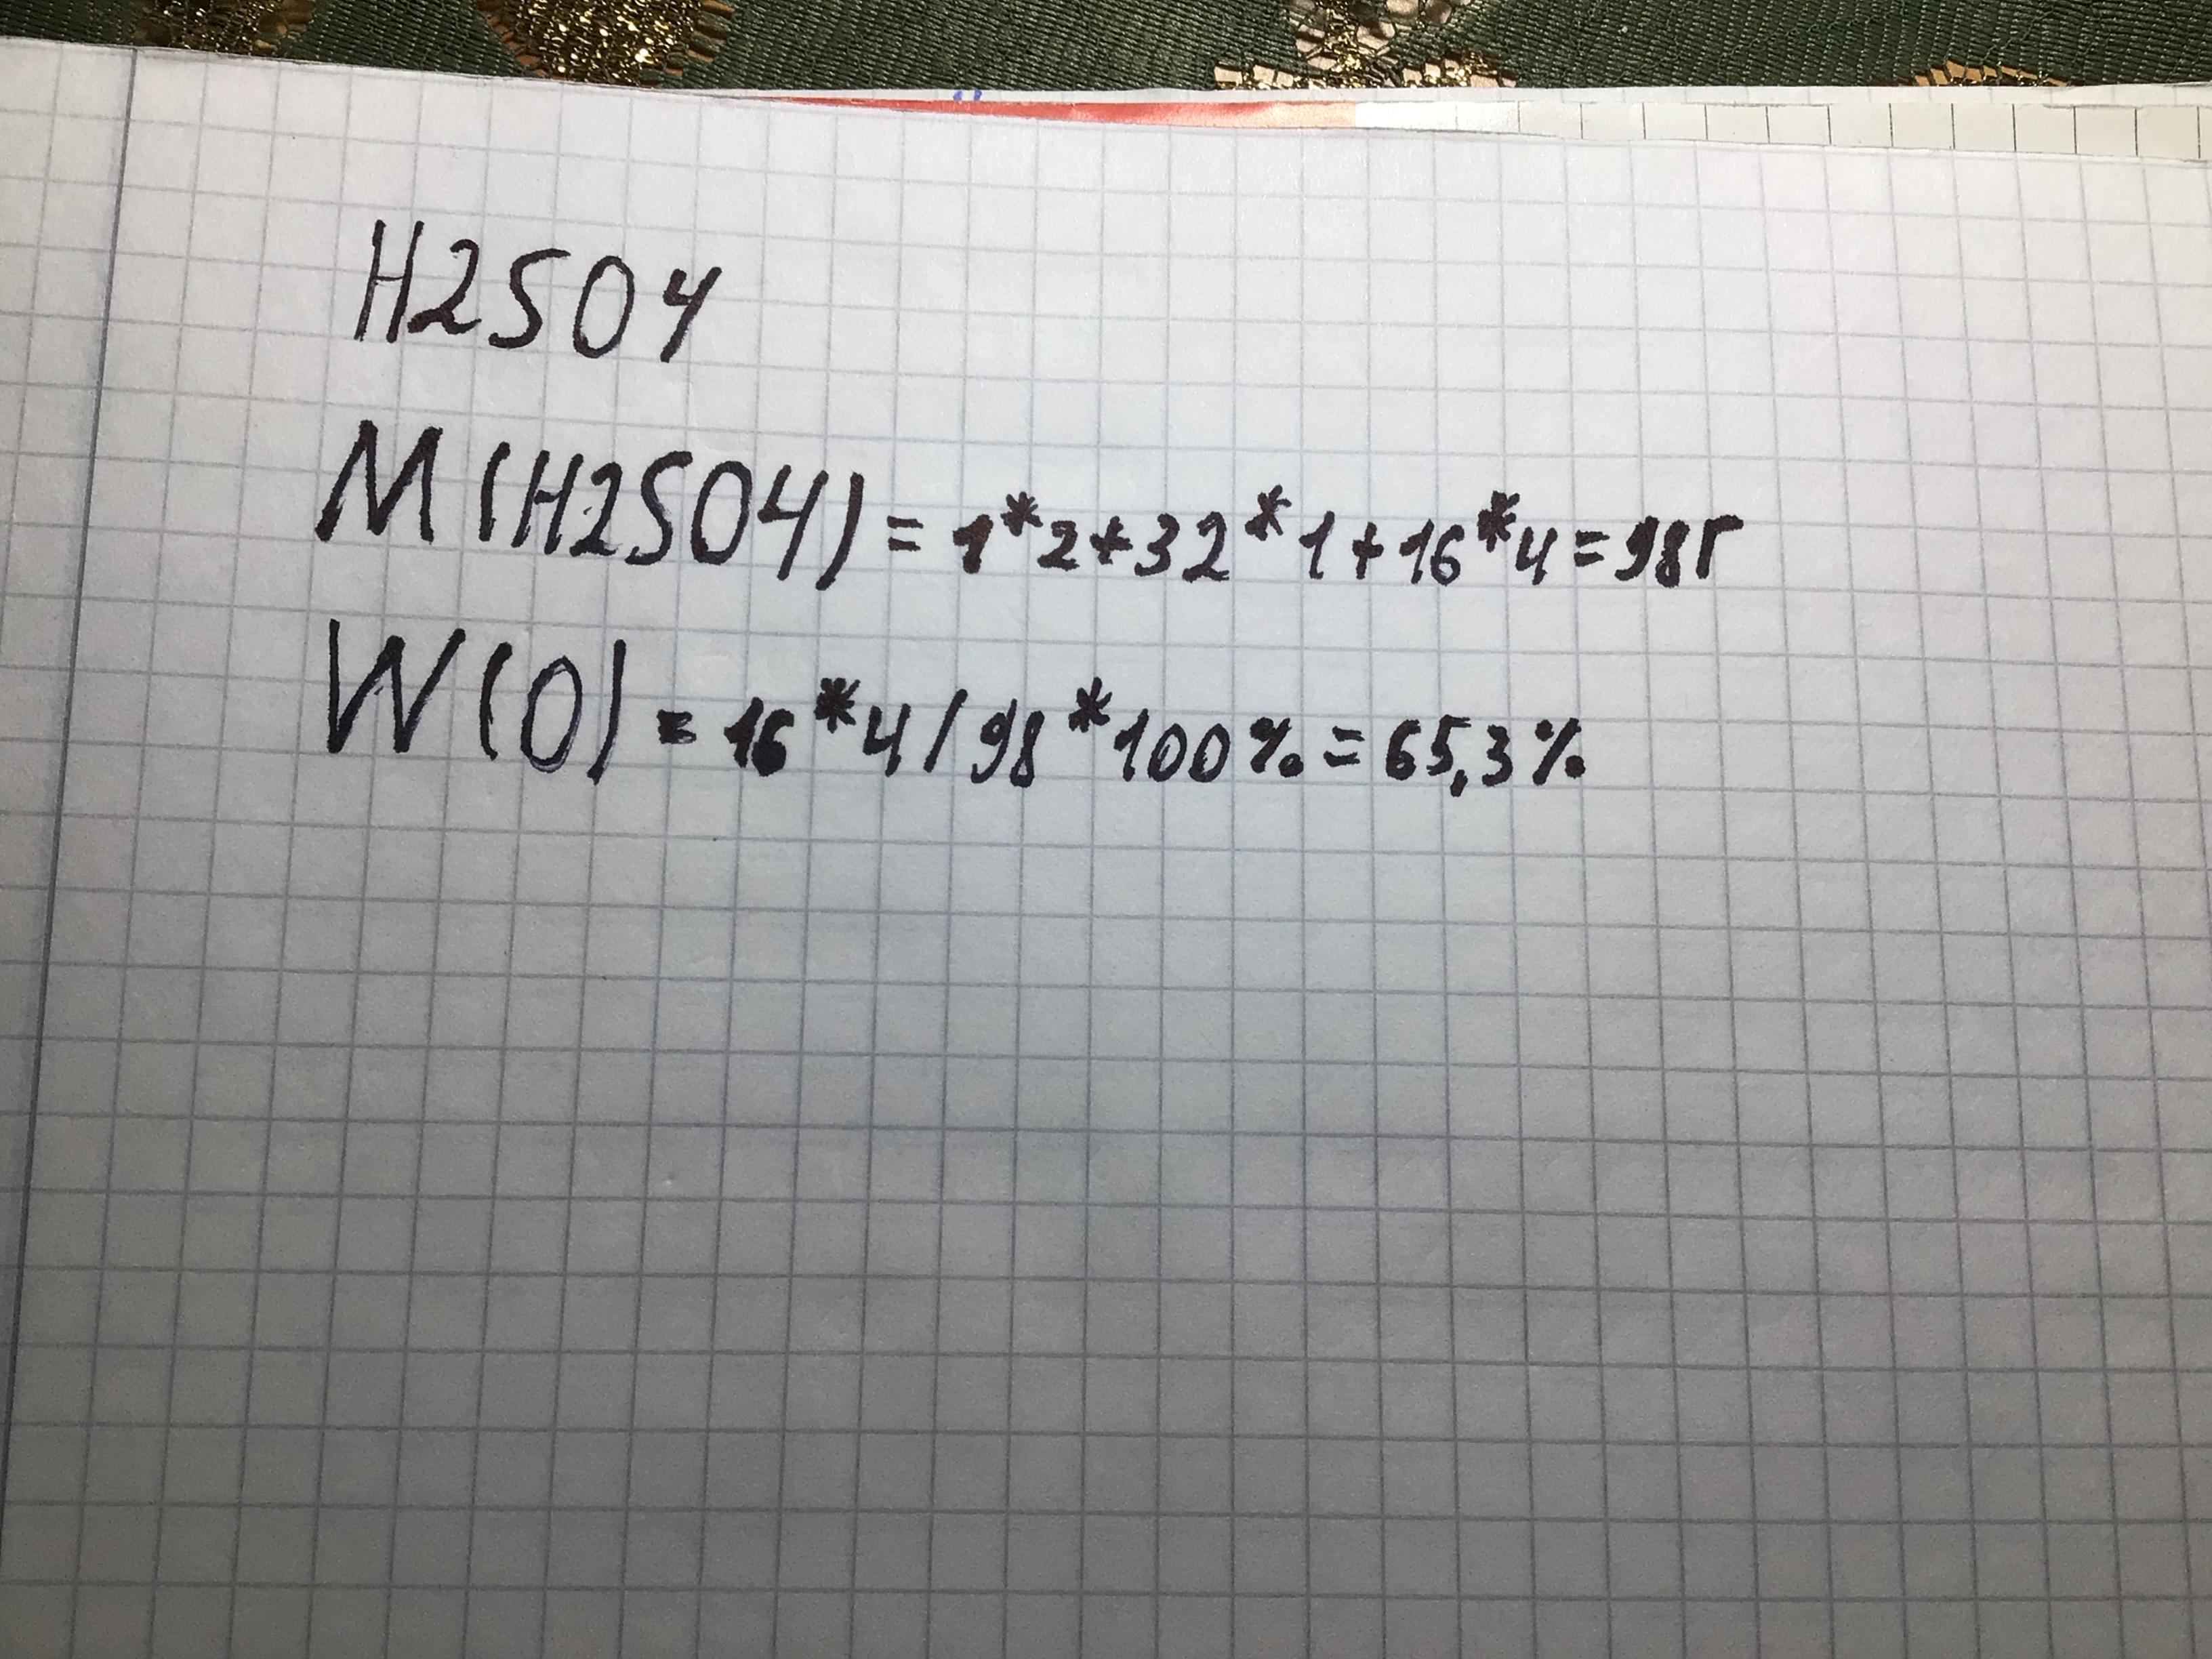 H2SO4
M(H2SO4) = 1*2+32*1+16*4=98г
W(O) = 16*4/98*100%=65,3%